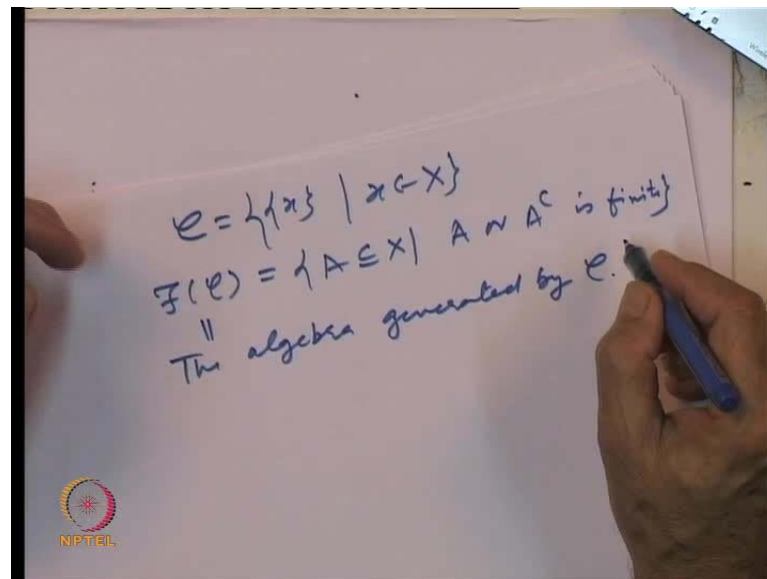 𝒞 = {{x} | x ∈ X}
ℱ(𝒞) = {A ⊆ X | A or A^c is finite}
||
The algebra generated by 𝒞.
NPTEL